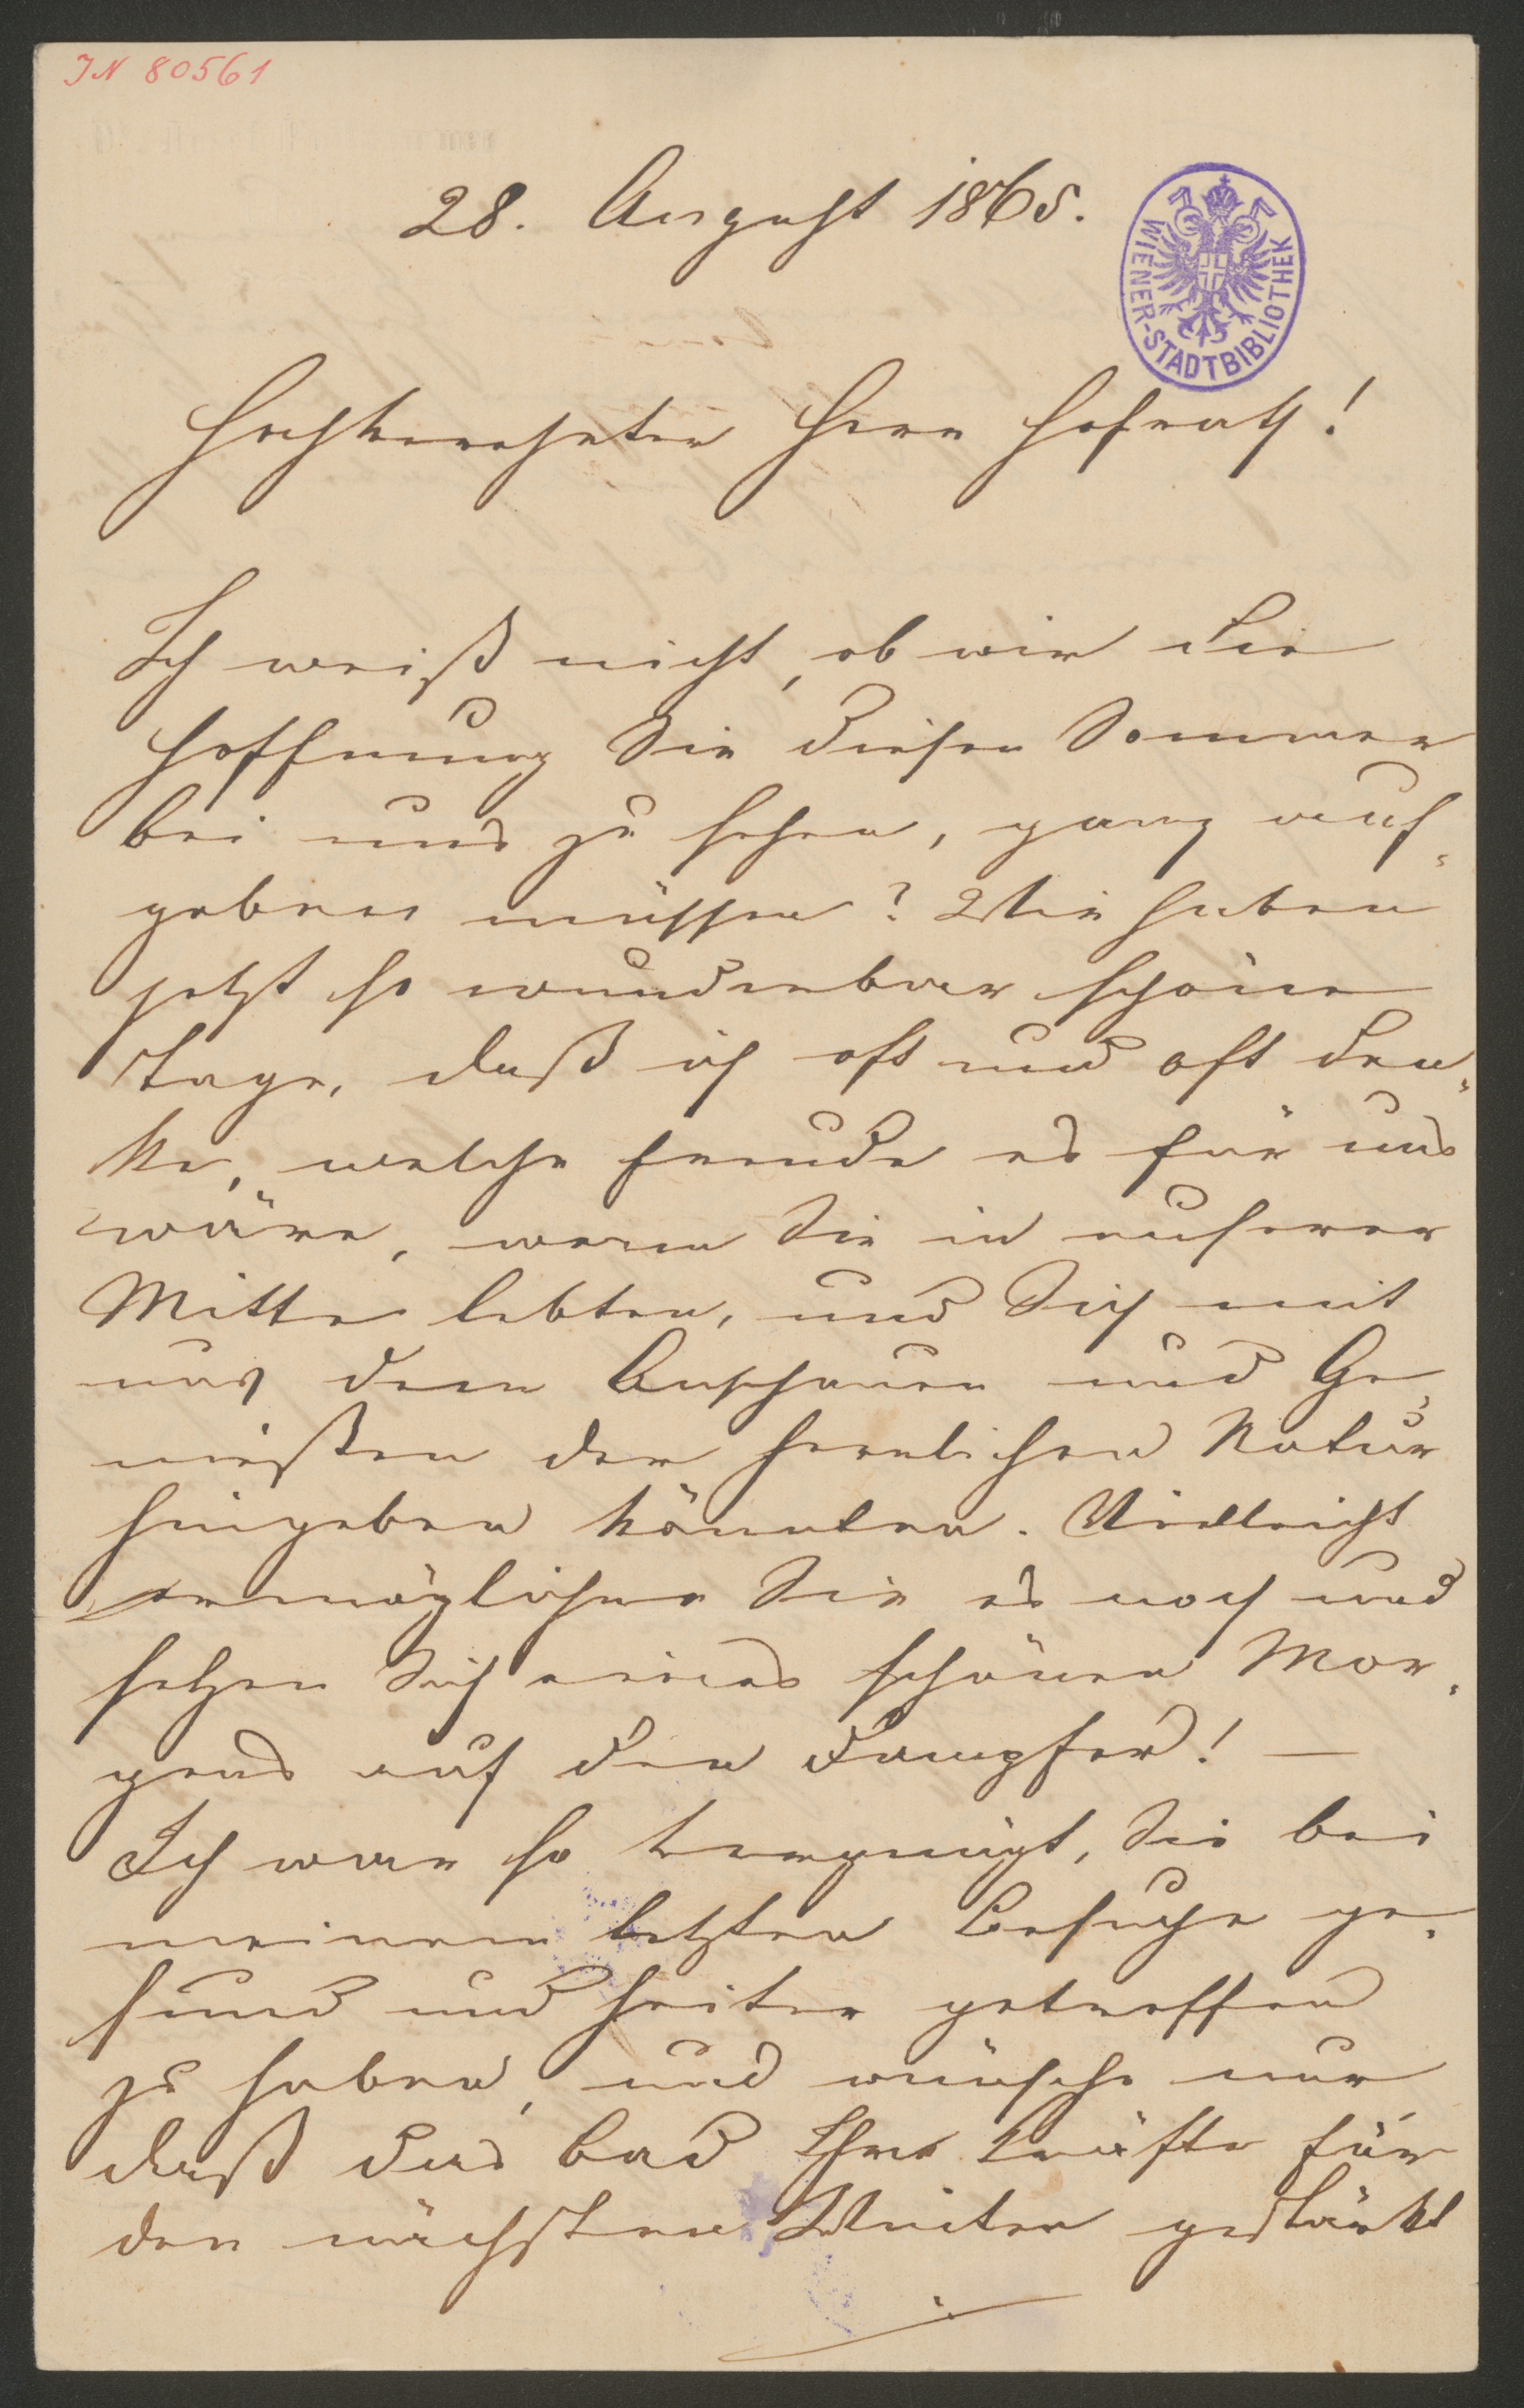 IN 80561
28. August 1865.
WIENER-STADTBIBLIOTHEK
Hochverehrter Herr Hofrath!
Ich weiß nicht, ob wir die
Hoffnung Sie diesen Sommer
bei uns zu sehen, ganz auf-
geben müssen? Wir haben
jetzt so wunderbar schöne
Tage, daß ich oft und oft den-
ke, welche Freude es für uns
wäre, wenn Sie in unserer
Mitte lebten, und Sich mit
uns dem Anschauen und Ge-
nießen der herrlichen Natur
hingeben könnten. Vielleicht
ermöglichen Sie es noch und
setzen Sich eines schönen Mor-
gens auf den Dampfer! —
Ich war so vergnügt, Sie bei
meinem letzten Besuche ge-
sund und heiter getroffen
zu haben, und wünsche nur
daß das Bad Ihre Kräfte für
den nächsten Winter gestärkt